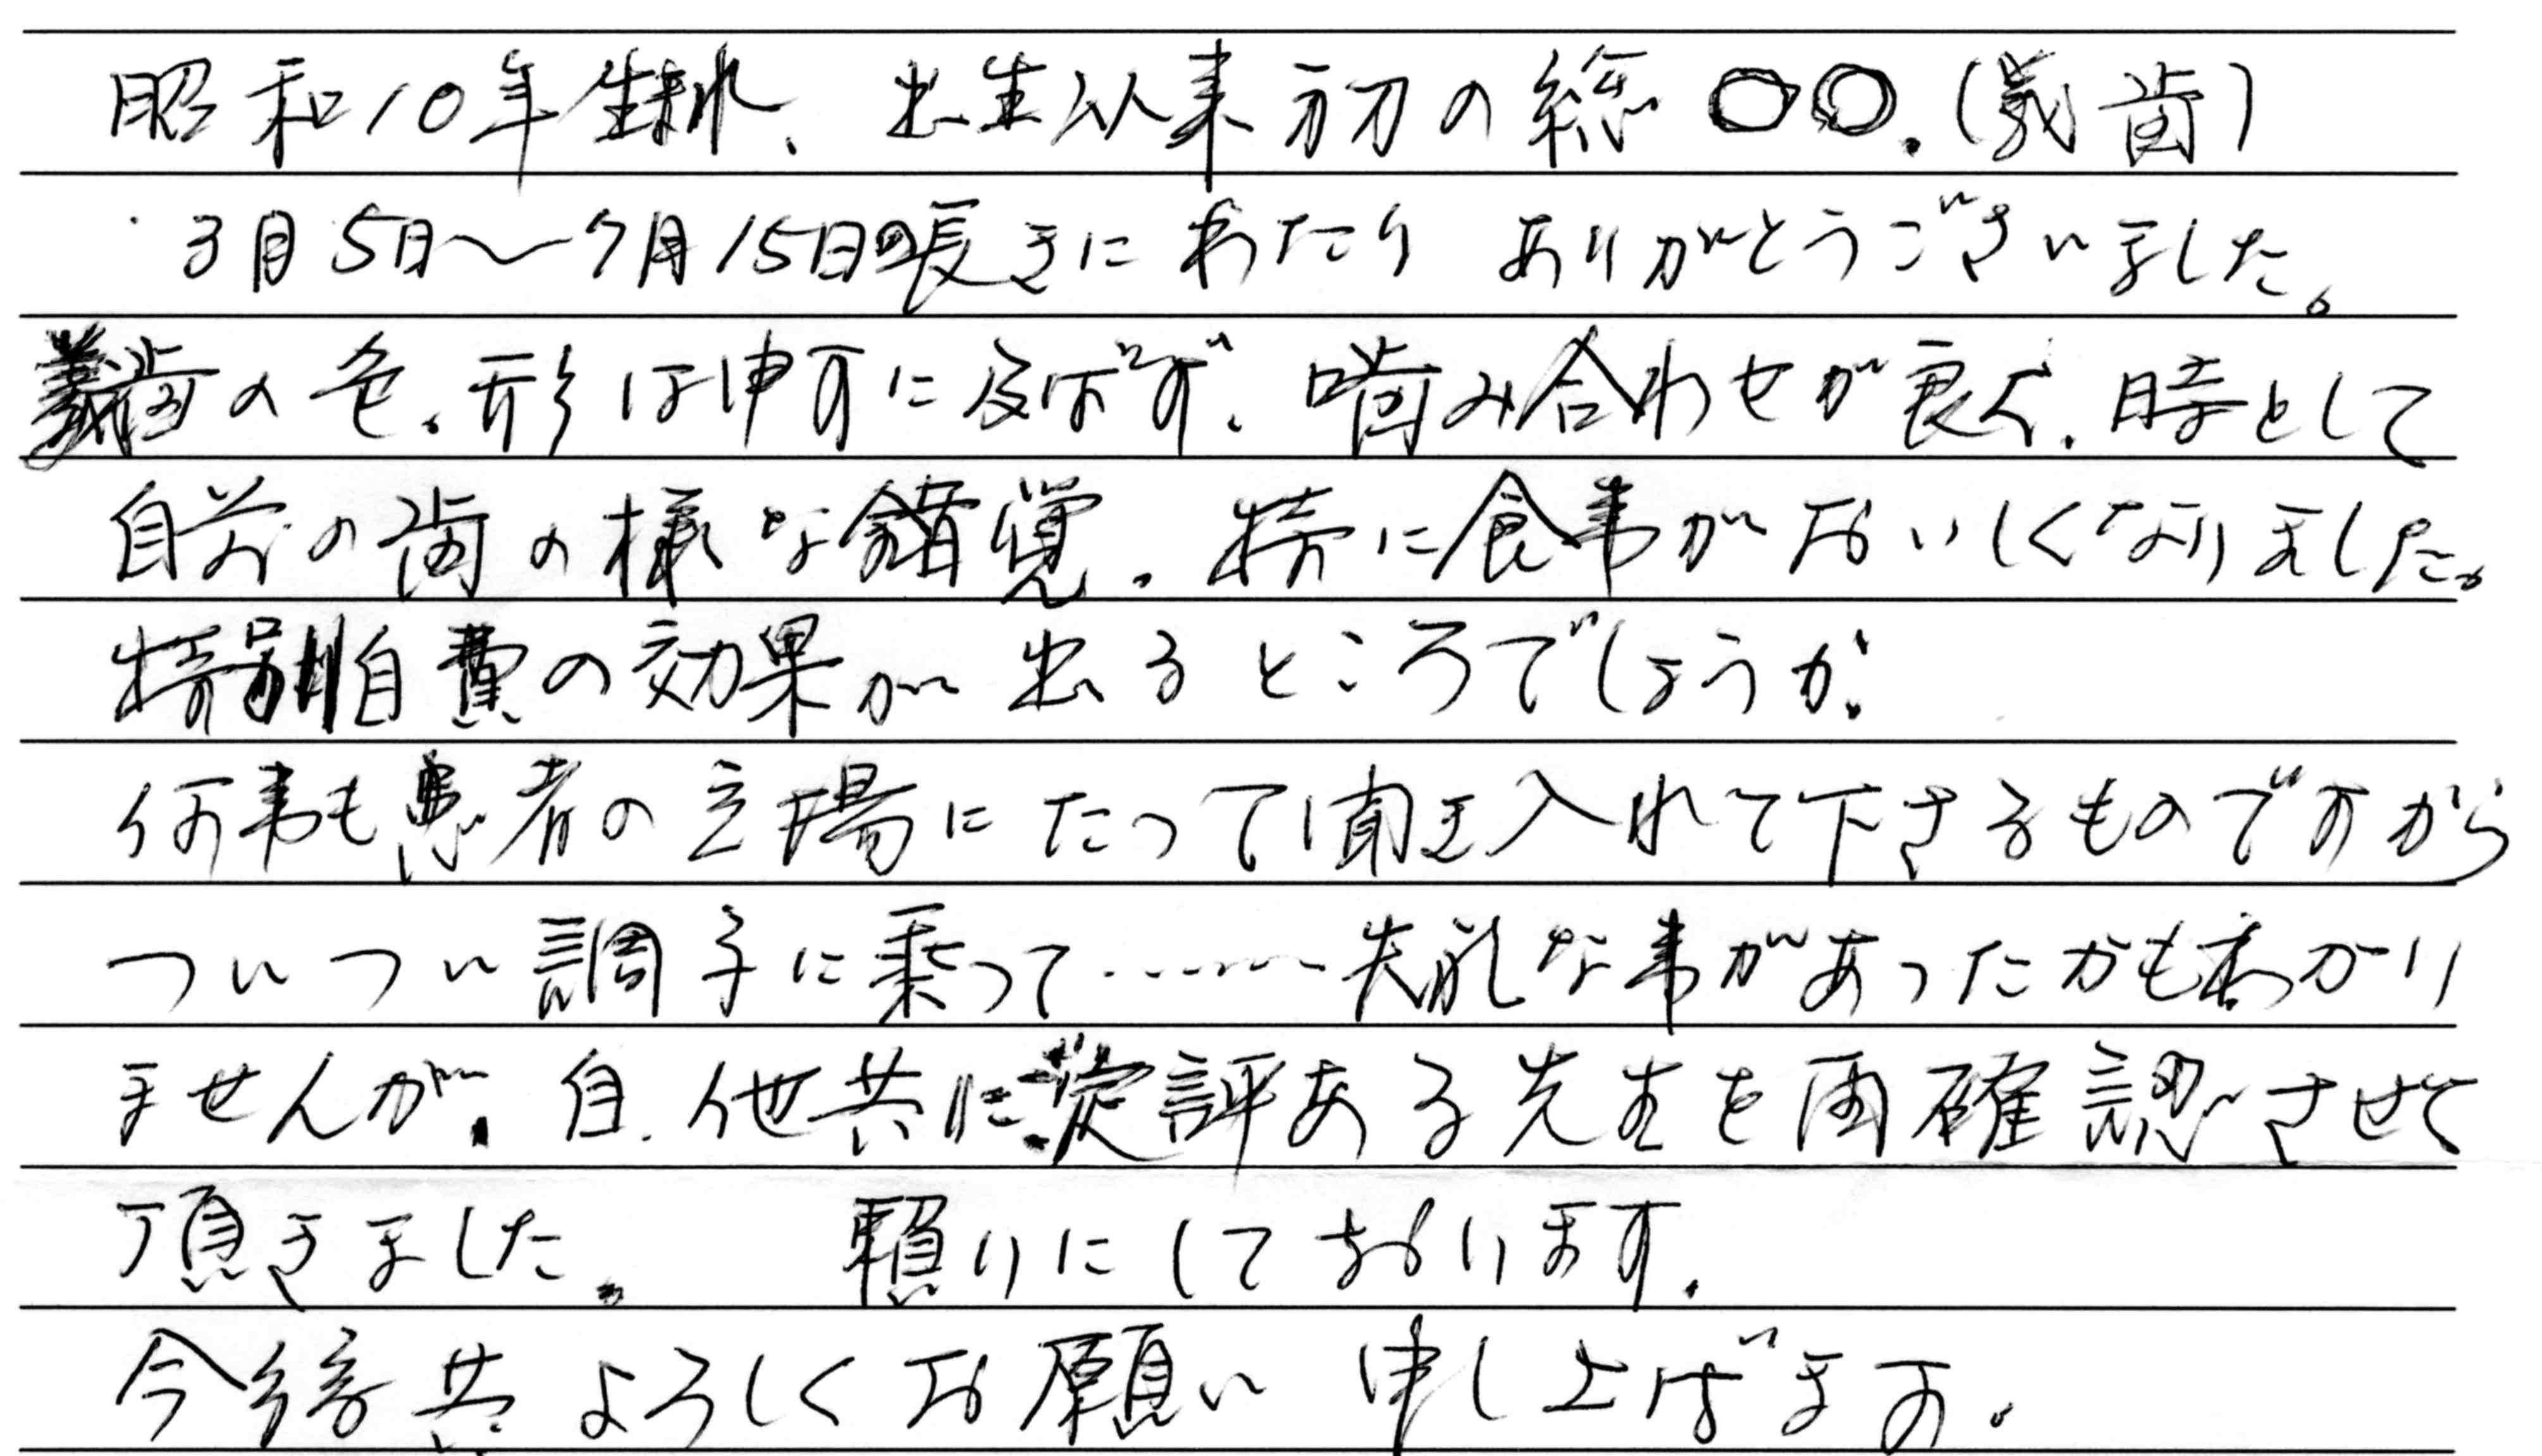 昭和10年生れ、出生以来初の総〇〇.(義歯)
3月5日〜7月15日の長きにわたり ありがとうございました。
義歯の色、形は申すに及ばず、噛み合わせが良く、時として
自前の歯の様な錯覚。特に食事がおいしくなりました。
特別自費の効果が出るところでしょうか。
何事も患者の立場にたって聞き入れて下さるものですから
ついつい調子に乗って………失礼な事があったかもわかり
ませんが、自、他共に定評ある先生を再確認させて
頂きました。 頼りにしております。
今後共よろしくお願い申し上げます。